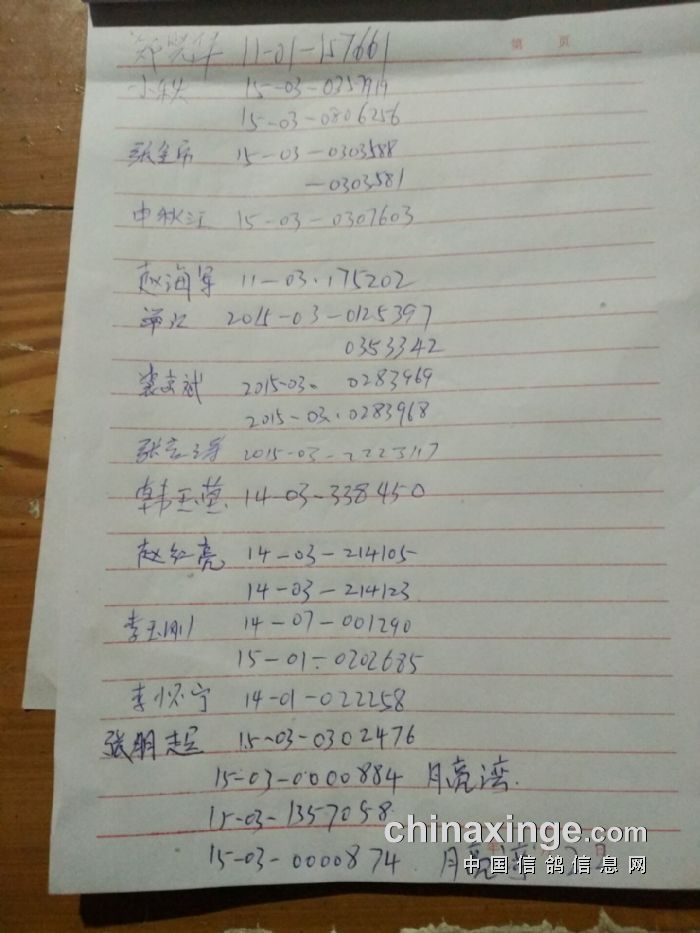 第 页
11-01-157661
小秋 15-03-0357919
15-03-0806256
张金币 15-03-0303588
-0303581
申秋江 15-03-0307603
赵海军 11-03.175202
2015-03-0125397
0353342
裴文斌 2015-03. 0283969
2015-03.0283968
2015-03-
韩玉莲 14-03-338450
赵红亮 14-03-214105
14-03-214123
李玉刚 14-07-001290
15-01-0202685
李怀宁 14-01-022258
张朋超 15-03-0302476
15-03-0000884 月亮湾.
15-03-1357058
15-03-0000874 月亮湾
chinaxinge.com
中国信鸽信息网